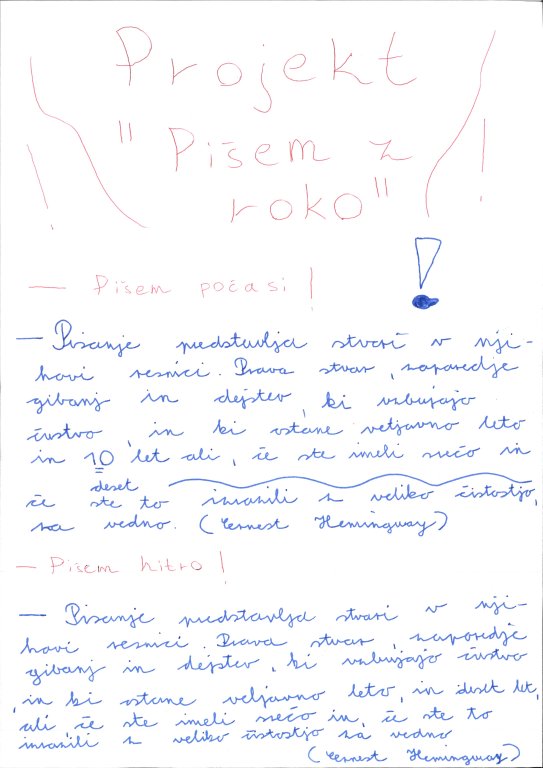 Projekt
"Pišem z
roko"
!
!
!
— Pišem počasi !
— Pisanje predstavlja stvari v nji-
hovi resnici. Prava stvar, zaporedje
gibanj in dejstev, ki vzbujajo
čustvo, in ki ostane veljavno leto
in 10 let ali, če ste imeli srečo in
deset
če ste to izrazili z veliko čistostjo,
za vedno. (Ernest Hemingway)
— Pišem hitro !
— Pisanje predstavlja stvari v nji-
hovi resnici. Prava stvar, zaporedje
gibanj in dejstev, ki vzbujajo čustvo
, in ki ostane veljavno leto, in deset let,
ali, če ste imeli srečo in, če ste to
izrazili z veliko čistostjo za vedno
(Ernest Hemingway)